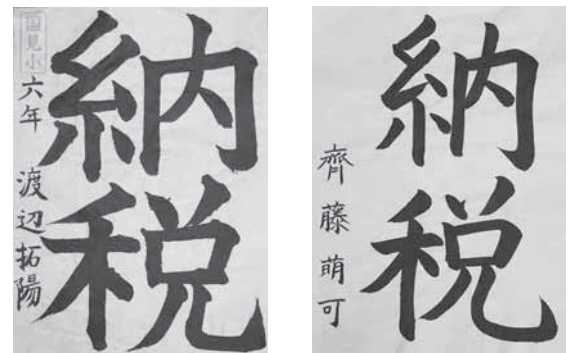 納税
国見小
六年 渡辺拓陽
納税
齊藤萌可